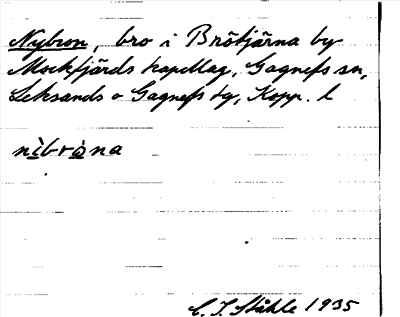 Nybron, bro i Brötjärna by
Mockfjärds kapellag, Gagnefs sn,
Leksands o Gagnefs tg, Kopp. l
nìbròna
C. I. Ståhle 1935